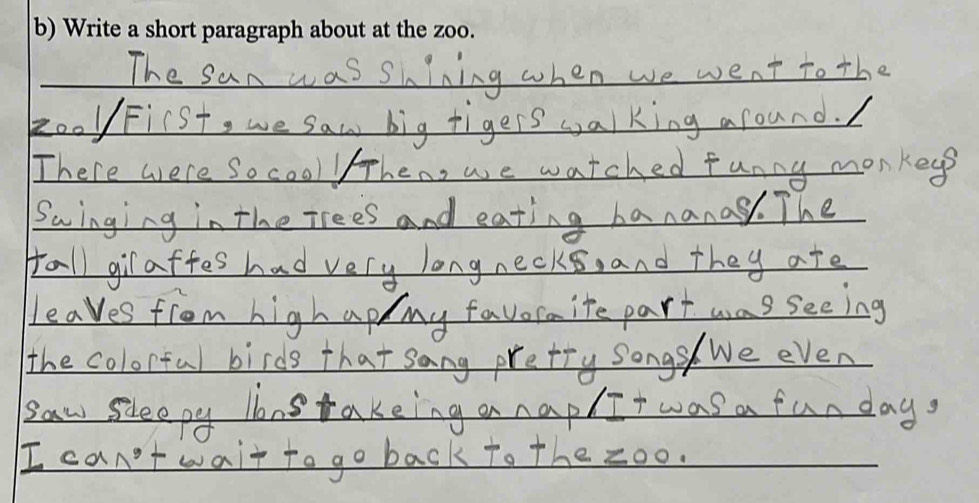 b) Write a short paragraph about at the zoo.
The sun was shining when we went to the
zoo!/First, we saw big tigers walking around./
There were so cool!/Then, we watched funny monkeys
Swinging in the Trees and eating bananas/. The
tall giraffes had very long necks, and they ate
leaves from high up/My favoraite part was seeing
the colorful birds that sang pretty songs/. We even
saw sleepy lions takeing a nap/It was a fun day,
I can't wait to go back to the zoo.